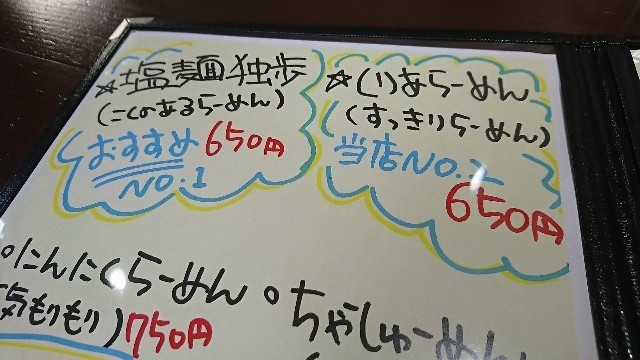 ☆塩麺独歩
(こくのあるらーめん)
おすすめ 650円
NO.1
☆くりあらーめん
(すっきりらーめん)
当店NO.2
650円
○にんにくらーめん
もりもり) 750円
○ちゃーしゅーめん